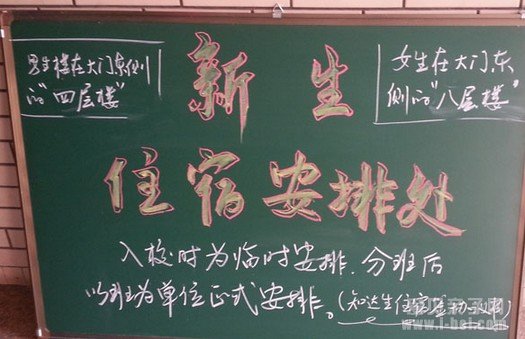 男生楼在大门东侧
的"四层楼"
女生在大门东
侧的"八层楼"
新生
住宿安排处
入校时为临时安排.分班后
以班为单位正式安排。(知达生住宿